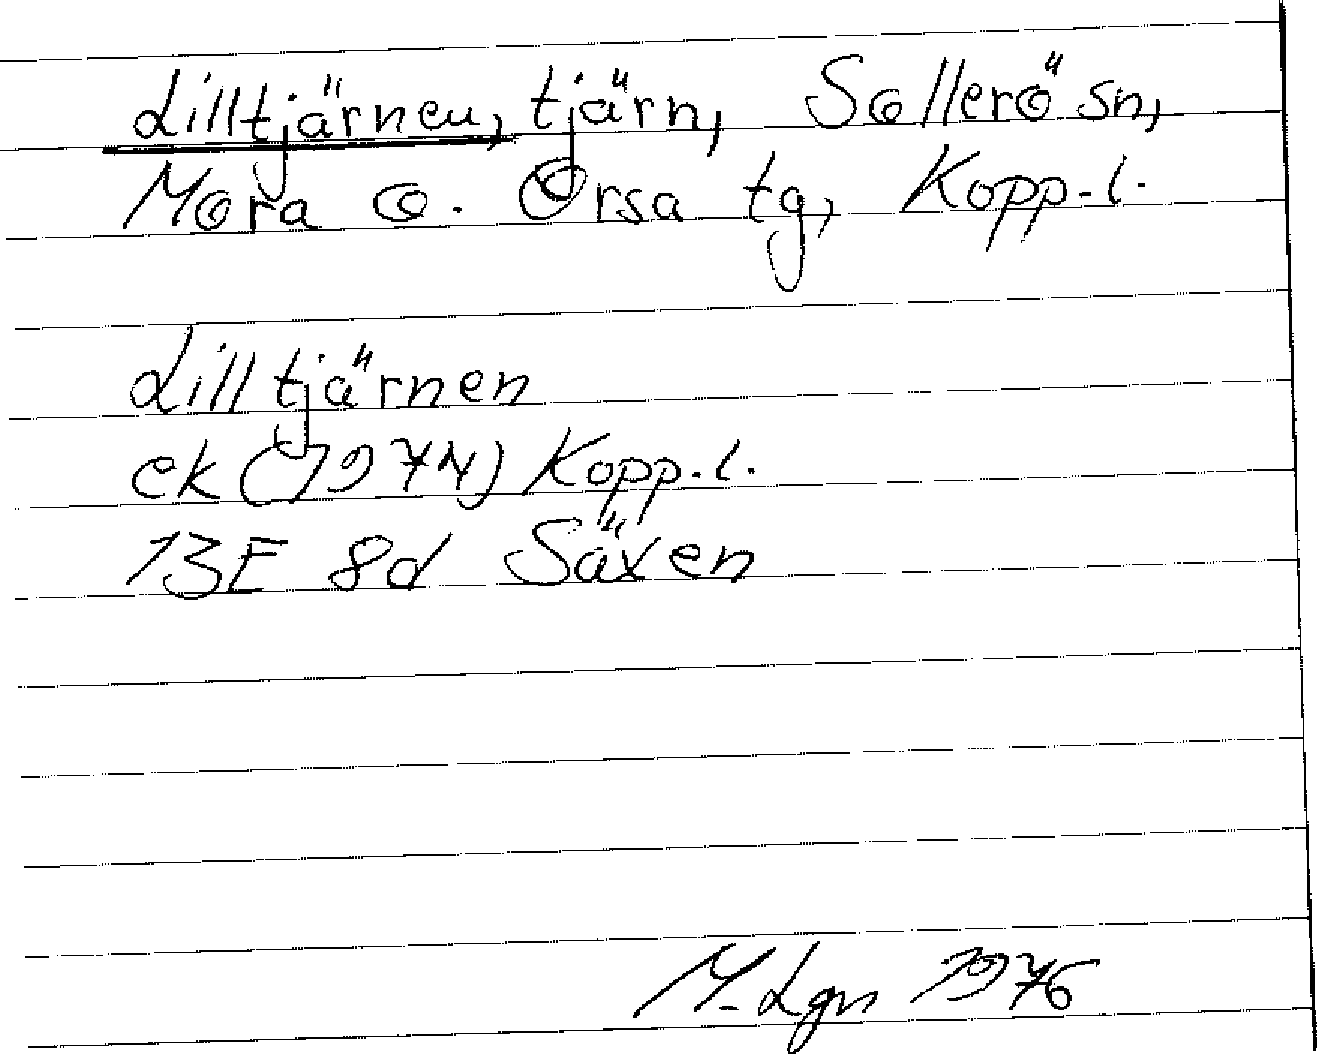 Lilltjärnen, tjärn, Sollerö sn,
Mora o. Orsa tg, Kopp-l.
Lilltjärnen
ek (1974) Kopp.l.
13E 8d Säxen
M-Lgn 1976